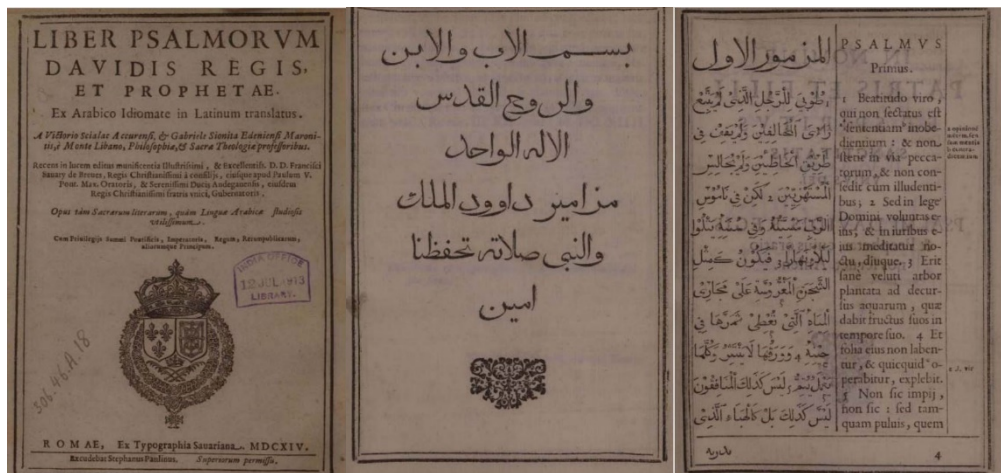 LIBER PSALMORVM
DAVIDIS REGIS,
ET PROPHETAE.
Ex Arabico Idiomate in Latinum translatus.
A Victorio Scialac Accurensi, & Gabriele Sionita Edeniensi Maroni-
tis, è Monte Libano, Philosophiæ, & Sacræ Theologiæ professoribus.
Recens in lucem editus munificentia Illustrissimi, & Excellentiss. D. D. Francisci
Sauary de Breues, Regis Christianissimi à consilijs, eiusque apud Paulum V.
Pont. Max. Oratoris, & Serenissimi Ducis Andegauensis, eiusdem
Regis Christianissimi fratris vnici, Gubernatoris.
Opus tàm Sacrarum literarum, quàm Linguæ Arabicæ studiosis
vtilissimum.
Cum Priuilegijs Summi Pontificis, Imperatoris, Regum, Rerumpublicarum,
aliorumque Principum.
INDIA OFFICE
12 JUL 1913
LIBRARY.
306.46.A.18
ROMAE, Ex Typographia Sauariana. MDCXIV.
Excudebat Stephanus Paulinus. Superiorum permissu.
بسم الاب والابن
والروح القدس
الاله الواحد
مزامير داوود الملك
والنبي صلاته تحفظنا
امين
المزمور الاول
طُوبَى لِلرَّجُلِ الَّذِي لَمْ يَتَّبِعْ
رَأْيَ الْمُخَالِفِينَ وَلَمْ يَقِفْ فِي
طَرِيقِ الْخَاطِئِينَ وَلَمْ يُجَالِسِ
الْمُسْتَهْزِئِينَ ٢ لَكِنْ فِي نَامُوسِ
الرَّبِّ مَشِيئَتُهُ وَفِي سُنَنِهِ يَتْلُوا
لَيْلًا وَنَهَارًا ٣ فَيَكُونُ كَمِثْلِ
الشَّجَرَةِ الْمَغْرُوسَةِ عَلَى مَجَارِي
الْمِيَاهِ الَّتِي تُعْطِي ثَمَرَهَا فِي
حِينِهِ ٤ وَوَرَقُهَا لَا يَنْتَثِرُ وَكُلَّمَا
يَعْمَلُ يَتِمُّ ٥ لَيْسَ كَذَلِكَ الْمُنَافِقُونَ
لَيْسَ كَذَلِكَ بَلْ كَالْهَبَاءِ الَّذِي
PSALMVS
Primus.
1 Beatitudo viro,
qui non sectatus est
sententiam inobe-
dientium: & non
stetit in via pecca-
torum, & non con-
sedit cum illudenti-
bus; 2 Sed in lege
Domini voluntas e-
ius, & in iuribus e-
ius meditatur no-
ctu, diuque. 3 Erit
sane veluti arbor
plantata ad decur-
sus aquarum, quæ
dabit fructus suos in
tempore suo. 4 Et
folia eius non laben-
tur, & quicquid o-
perabitur, explebit.
5 Non sic impij,
non sic: sed tam-
quam puluis, quem
4